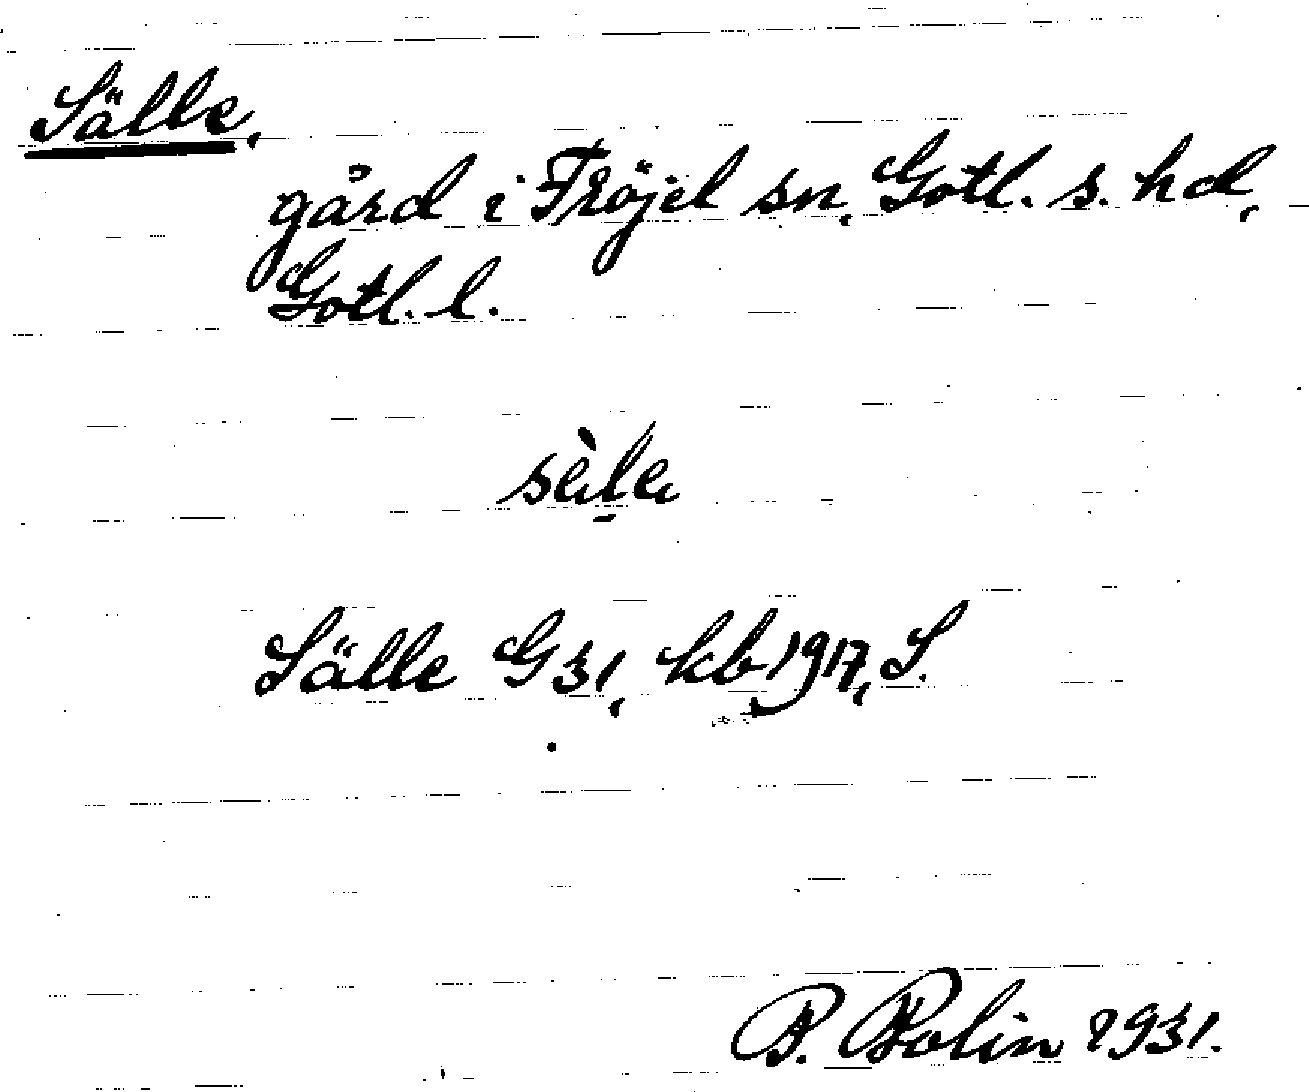 Sälle,
gård i Fröjel sn, Gotl. s. hd,
Gotl. l.
sèl̠e
Sälle G31, kb 1917, S.
B. Bolin 1931.